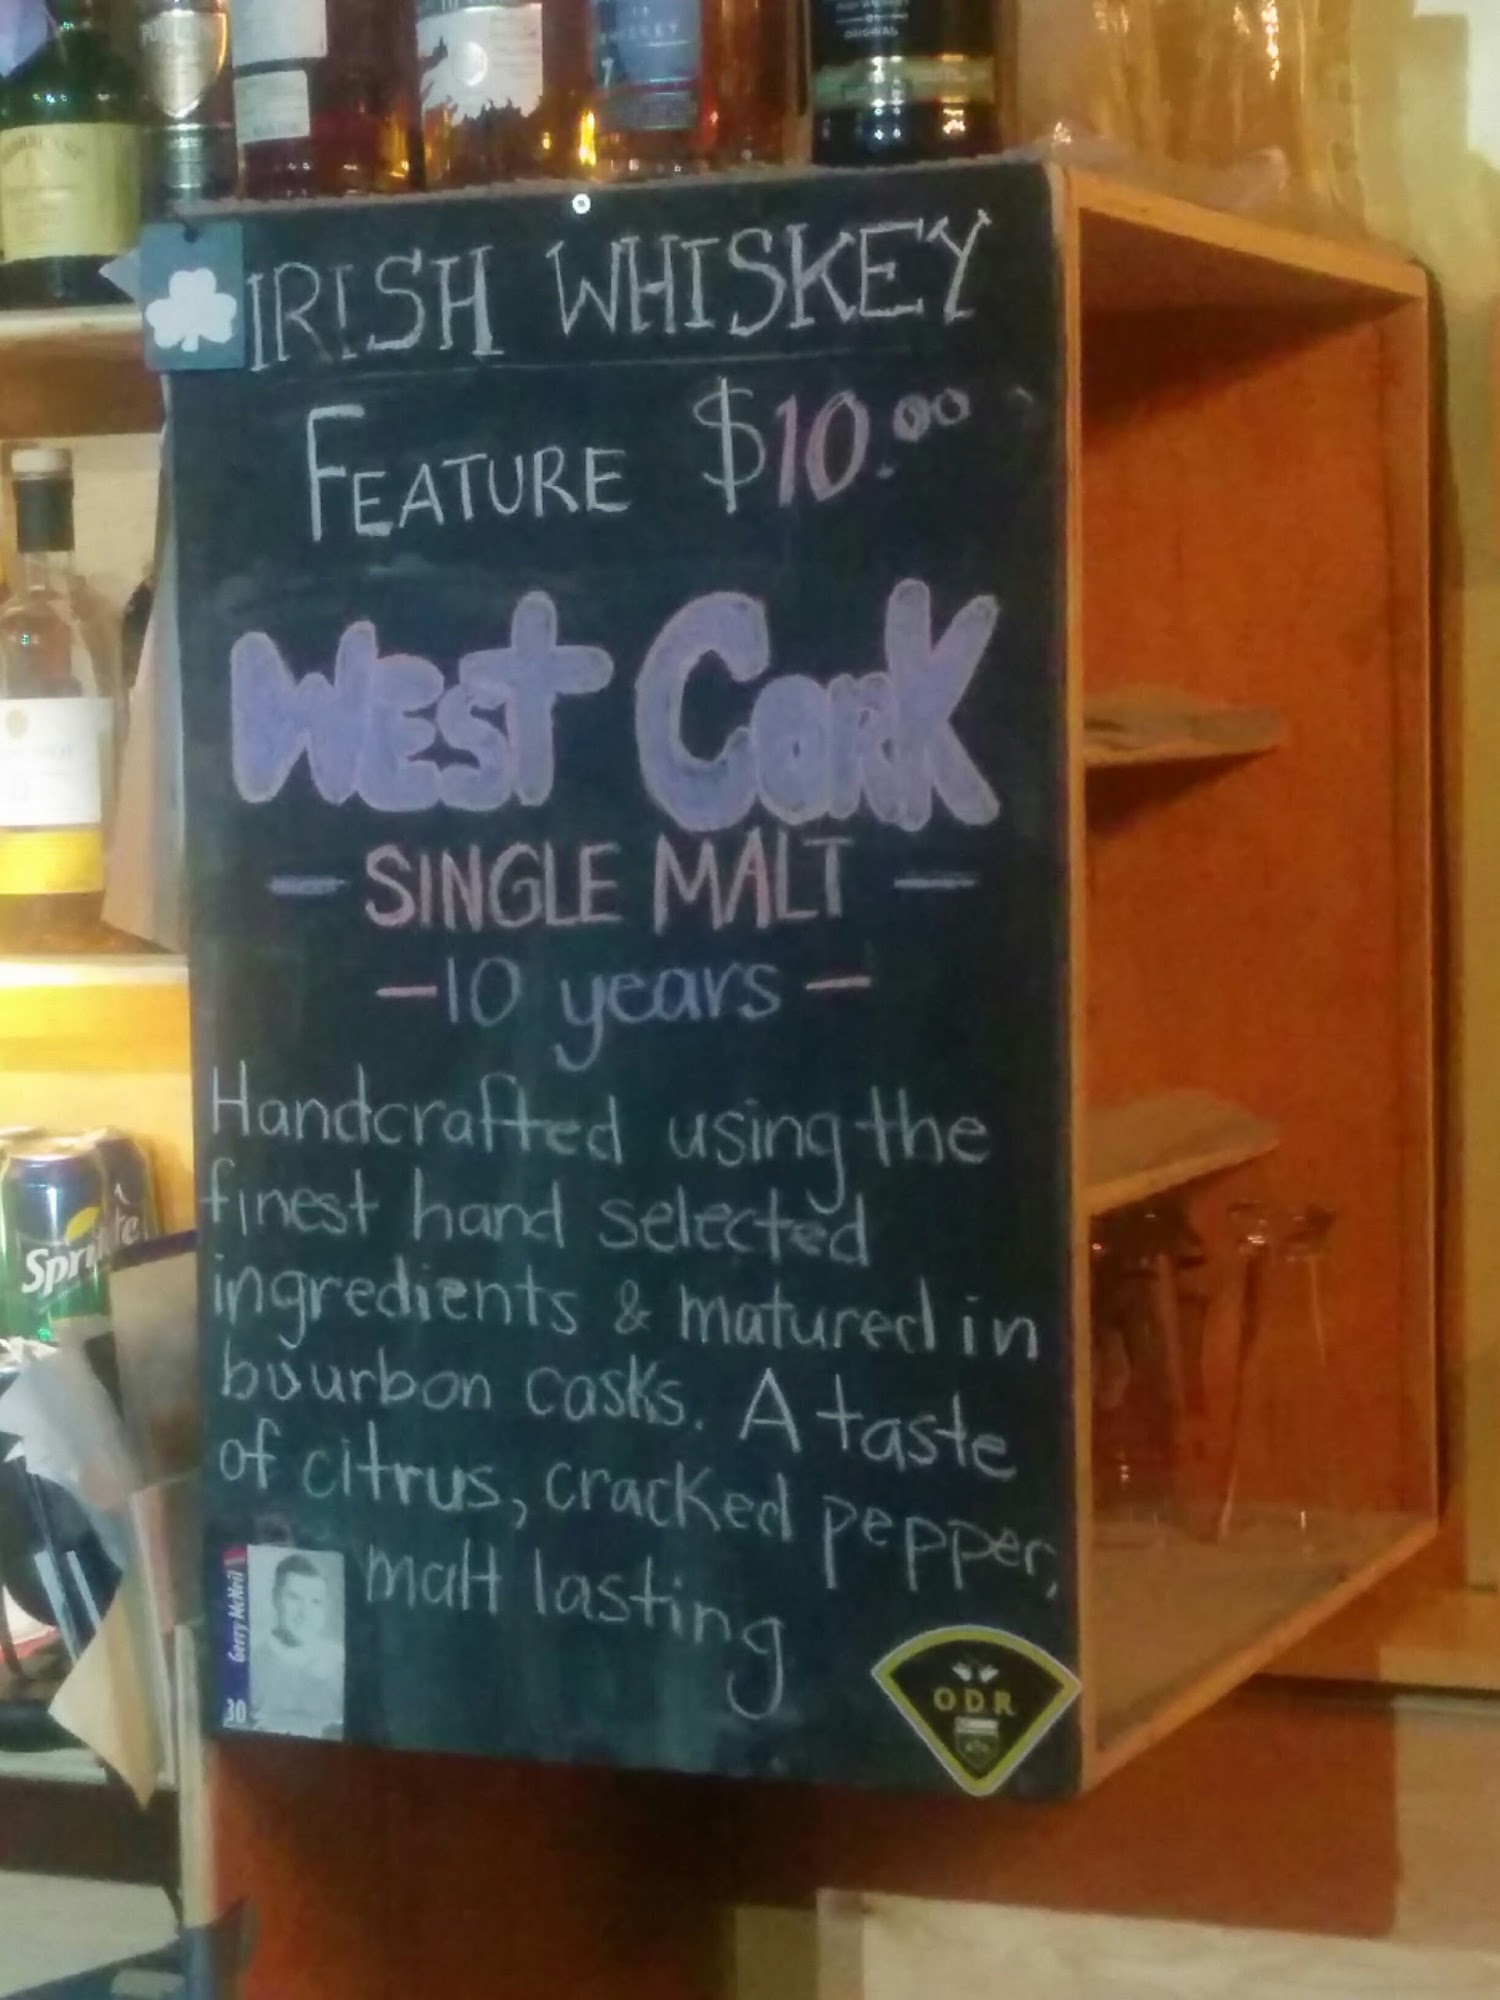 ORIGINAL
IRISH WHISKEY
FEATURE $10.00
WEST CORK
— SINGLE MALT —
— 10 years —
Handcrafted using the
finest hand selected
ingredients & matured in
bourbon casks. A taste
of citrus, cracked pepper,
malt lasting
Gerry McNeil
30
ODR
Sprite